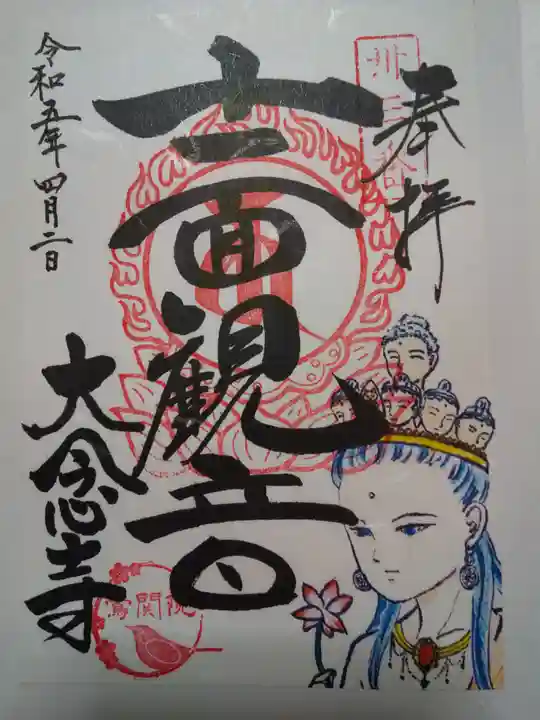 奉拝
十一面觀音
令和五年四月二日
大念寺
鶯関院